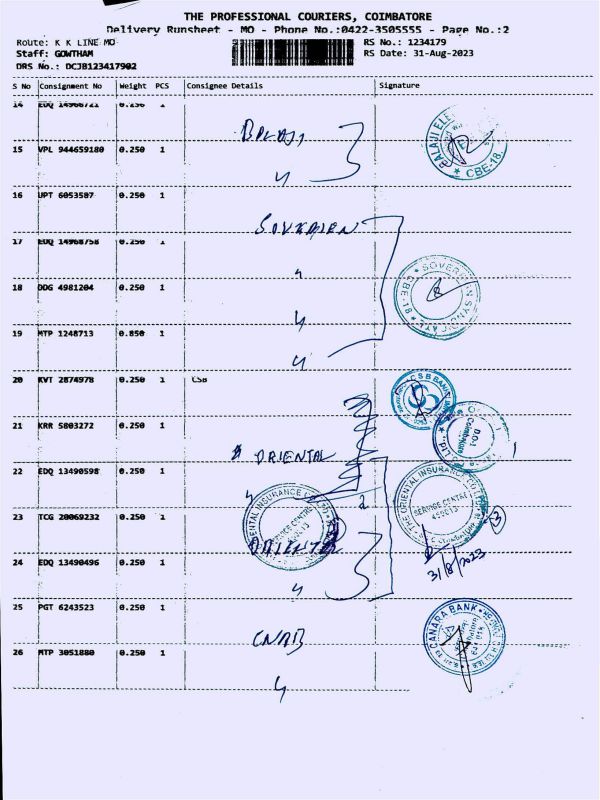 THE PROFESSIONAL COURIERS, COIMBATORE
Delivery Runsheet - MO - Phone No.:0422-3505555 - Page No.:2
Route: K K LINE MO RS No.: 1234179
Staff: GOWTHAM RS Date: 31-Aug-2023
DRS No.: DCJB123417902
S No Consignment No Weight PCS Consignee Details Signature
14 EDQ 14968721 0.250 1
BALAJI
BALAJI ELE
CBE-18.
15 VPL 944659180 0.250 1
16 UPT 6053587 0.250 1
SOVERIEN
17 EDQ 14968758 0.250 1
18 DDG 4981204 0.250 1
SOVEREIGN SYNDICATE
CBE-18
19 MTP 1248713 0.850 1
20 KVT 2874978 0.250 1 CSB
CSB BANK
21 KRR 5803272 0.250 1
D.O-1
Coimbatore
Ltd.
ORIENTAL
22 EDQ 13490598 0.250 1
2
THE ORIENTAL INSURANCE CO
SERVICE CENTRE
ORIENTAL INSURANCE CO
SERVICE CENTRE
23 TCG 20069232 0.250 1
3
ORIENTAL
24 EDQ 13490496 0.250 1
31/8/2023
25 PGT 6243523 0.250 1
CANARA BANK
CNRB
26 MTP 3051880 0.250 1